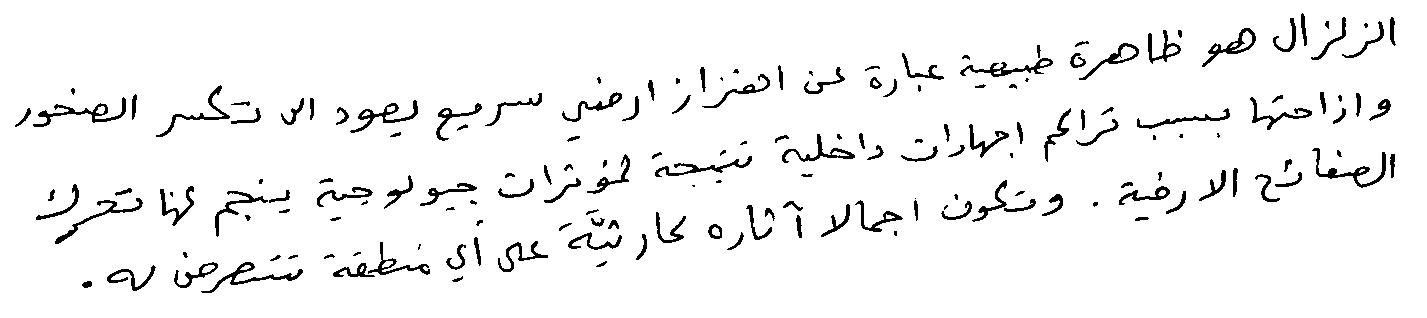 الزلزال هو ظاهرة طبيعية عبارة عن اهتزاز ارضي سريع يعود الى تكسر الصخور
وازاحتها بسبب تراكم اجهادات داخلية نتيجة لمؤثرات جيولوجية ينجم عنها تحرك
الصفائح الارضية. وتكون اجمالا آثاره كارثيَّة على أي منطقة تتعرض له.